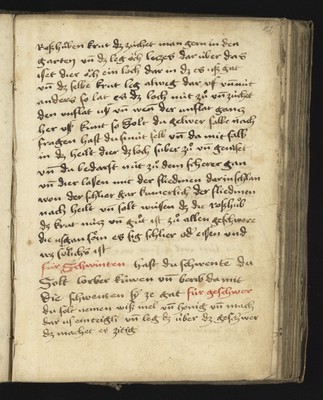 Roshůben krut dz züchet man gern in den
garten vn̄ dz leg öch loczes dar über das
iset dier öch ein loch dar in dz es usz gat
vn̄ dz selbe krut leg alweg dar uf vn̄ mit
anders so lat es dz loch nüt zů vn̄ züchet
den unflat usz vn̄ wen der unflat gancz
her usz kunt so Solt du gelwer salbe nach
fragen hast du sunst selb vn̄ da mit salb
in dz heilt dier dz loch suber zů vn̄ geniset
vn̄ du bedarft nüt zů dem scherer gan
vn̄ dier lassen mit der fliedmen darin schlan
won der schlier gar kumerlich der fliedmen
nach heilt vn̄ solt wüsen dz die roshůb
dz krut nücz vn̄ gůt ist zů allen geschwere
die usgan sön es sig schlier od eissen und
wz sölichs ist
für Schwinten hast du schwente du
Solt lorber küwen vn̄ berib da mit
Die schwenten sy ze gat für geschwer
du solt nemen wisz mel vn̄ honig vn̄ mach
dar us ein teigli vn̄ leg dz über dz geschwer
dz machet es zitig